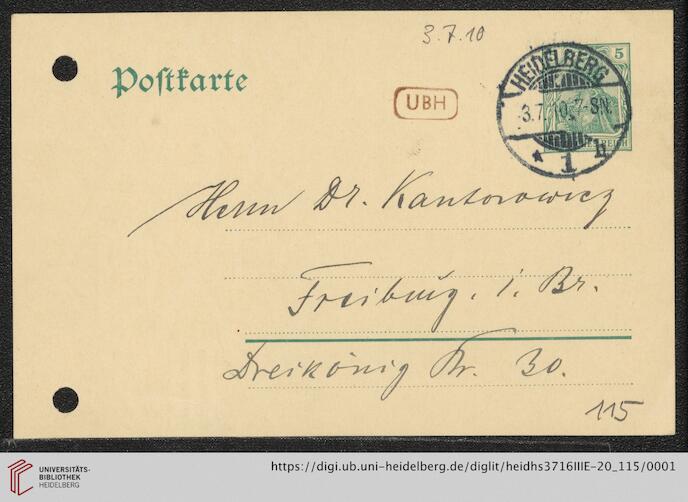 3.7.10
Postkarte
UBH
HEIDELBERG
3.7.10.7-8N.
* 1 h
5
Herrn Dr. Kantorowicz
Freiburg. i. Br.
Dreikönig Str. 30.
115
UNIVERSITÄTS-
BIBLIOTHEK
HEIDELBERG
https://digi.ub.uni-heidelberg.de/diglit/heidhs3716IIIE-20_115/0001